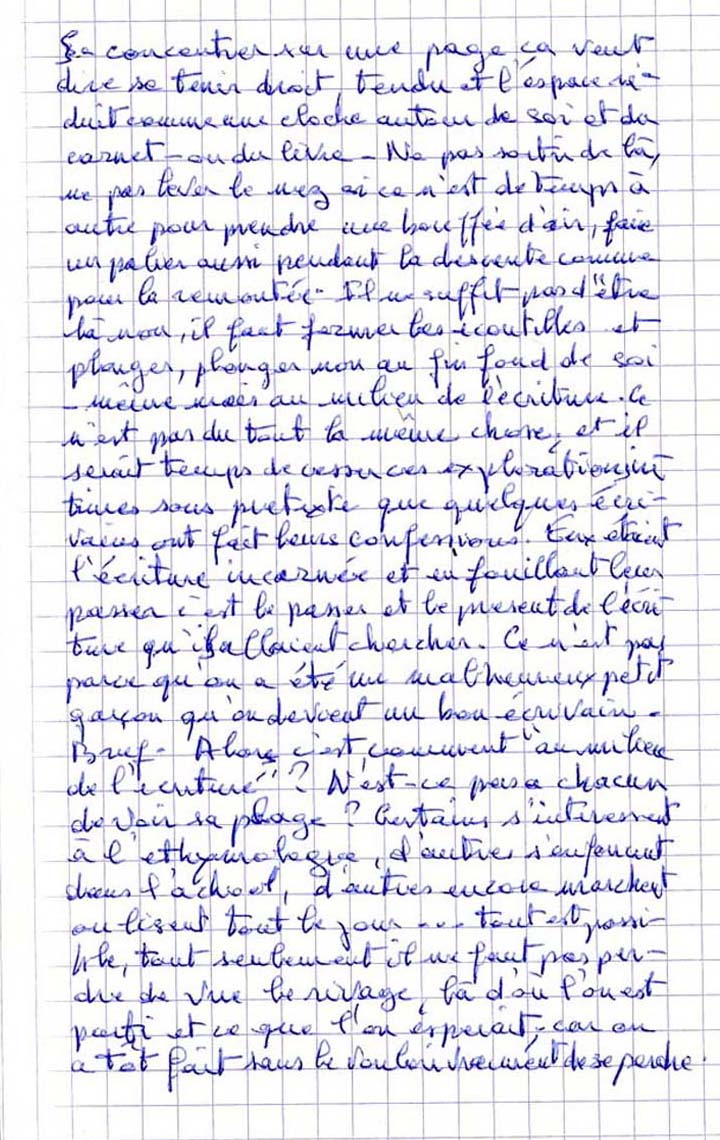 Se concentrer sur une page ça veut
dire se tenir droit, tendu et l'espace ré-
duit comme une cloche autour de soi et du
carnet - ou du livre - Ne pas sortir de là,
ne pas lever le nez si ce n'est de temps à
autre pour prendre une bouffée d'air, faire
un palier aussi pendant la descente comme
pour la remontée. Il ne suffit pas d'être
là non, il faut fermer les écoutilles et
plonger, plonger non au fin fond de soi
-même mais au milieu de l'écriture. Ce
n'est pas du tout la même chose, et il
serait temps de cesser ces explorations in
times sous prétexte que quelques écri-
vains ont fait leurs confessions. Eux étaient
l'écriture incarnée et en fouillant leur
passer c'est le passer et le présent de l'écri
ture qu'ils allaient chercher. Ce n'est pas
parce qu'on a été un malheureux petit
garçon qu'on devient un bon écrivain.
Bref. Alors c'est comment "au milieu
de l'écriture" ? N'est-ce pas a chacun
de voir sa plage ? Certains s'intéressent
à l'ethymologie, d'autres s'enfoncent
dans l'alcool, d'autres encore marchent
ou lisent tout le jour ... tout est possi-
ble, tout seulement il ne faut pas per-
dre de vue le rivage, là d'où l'on est
parti et ce que l'on espérait, car on
a tôt fait sans le vouloir vraiment de se perdre.